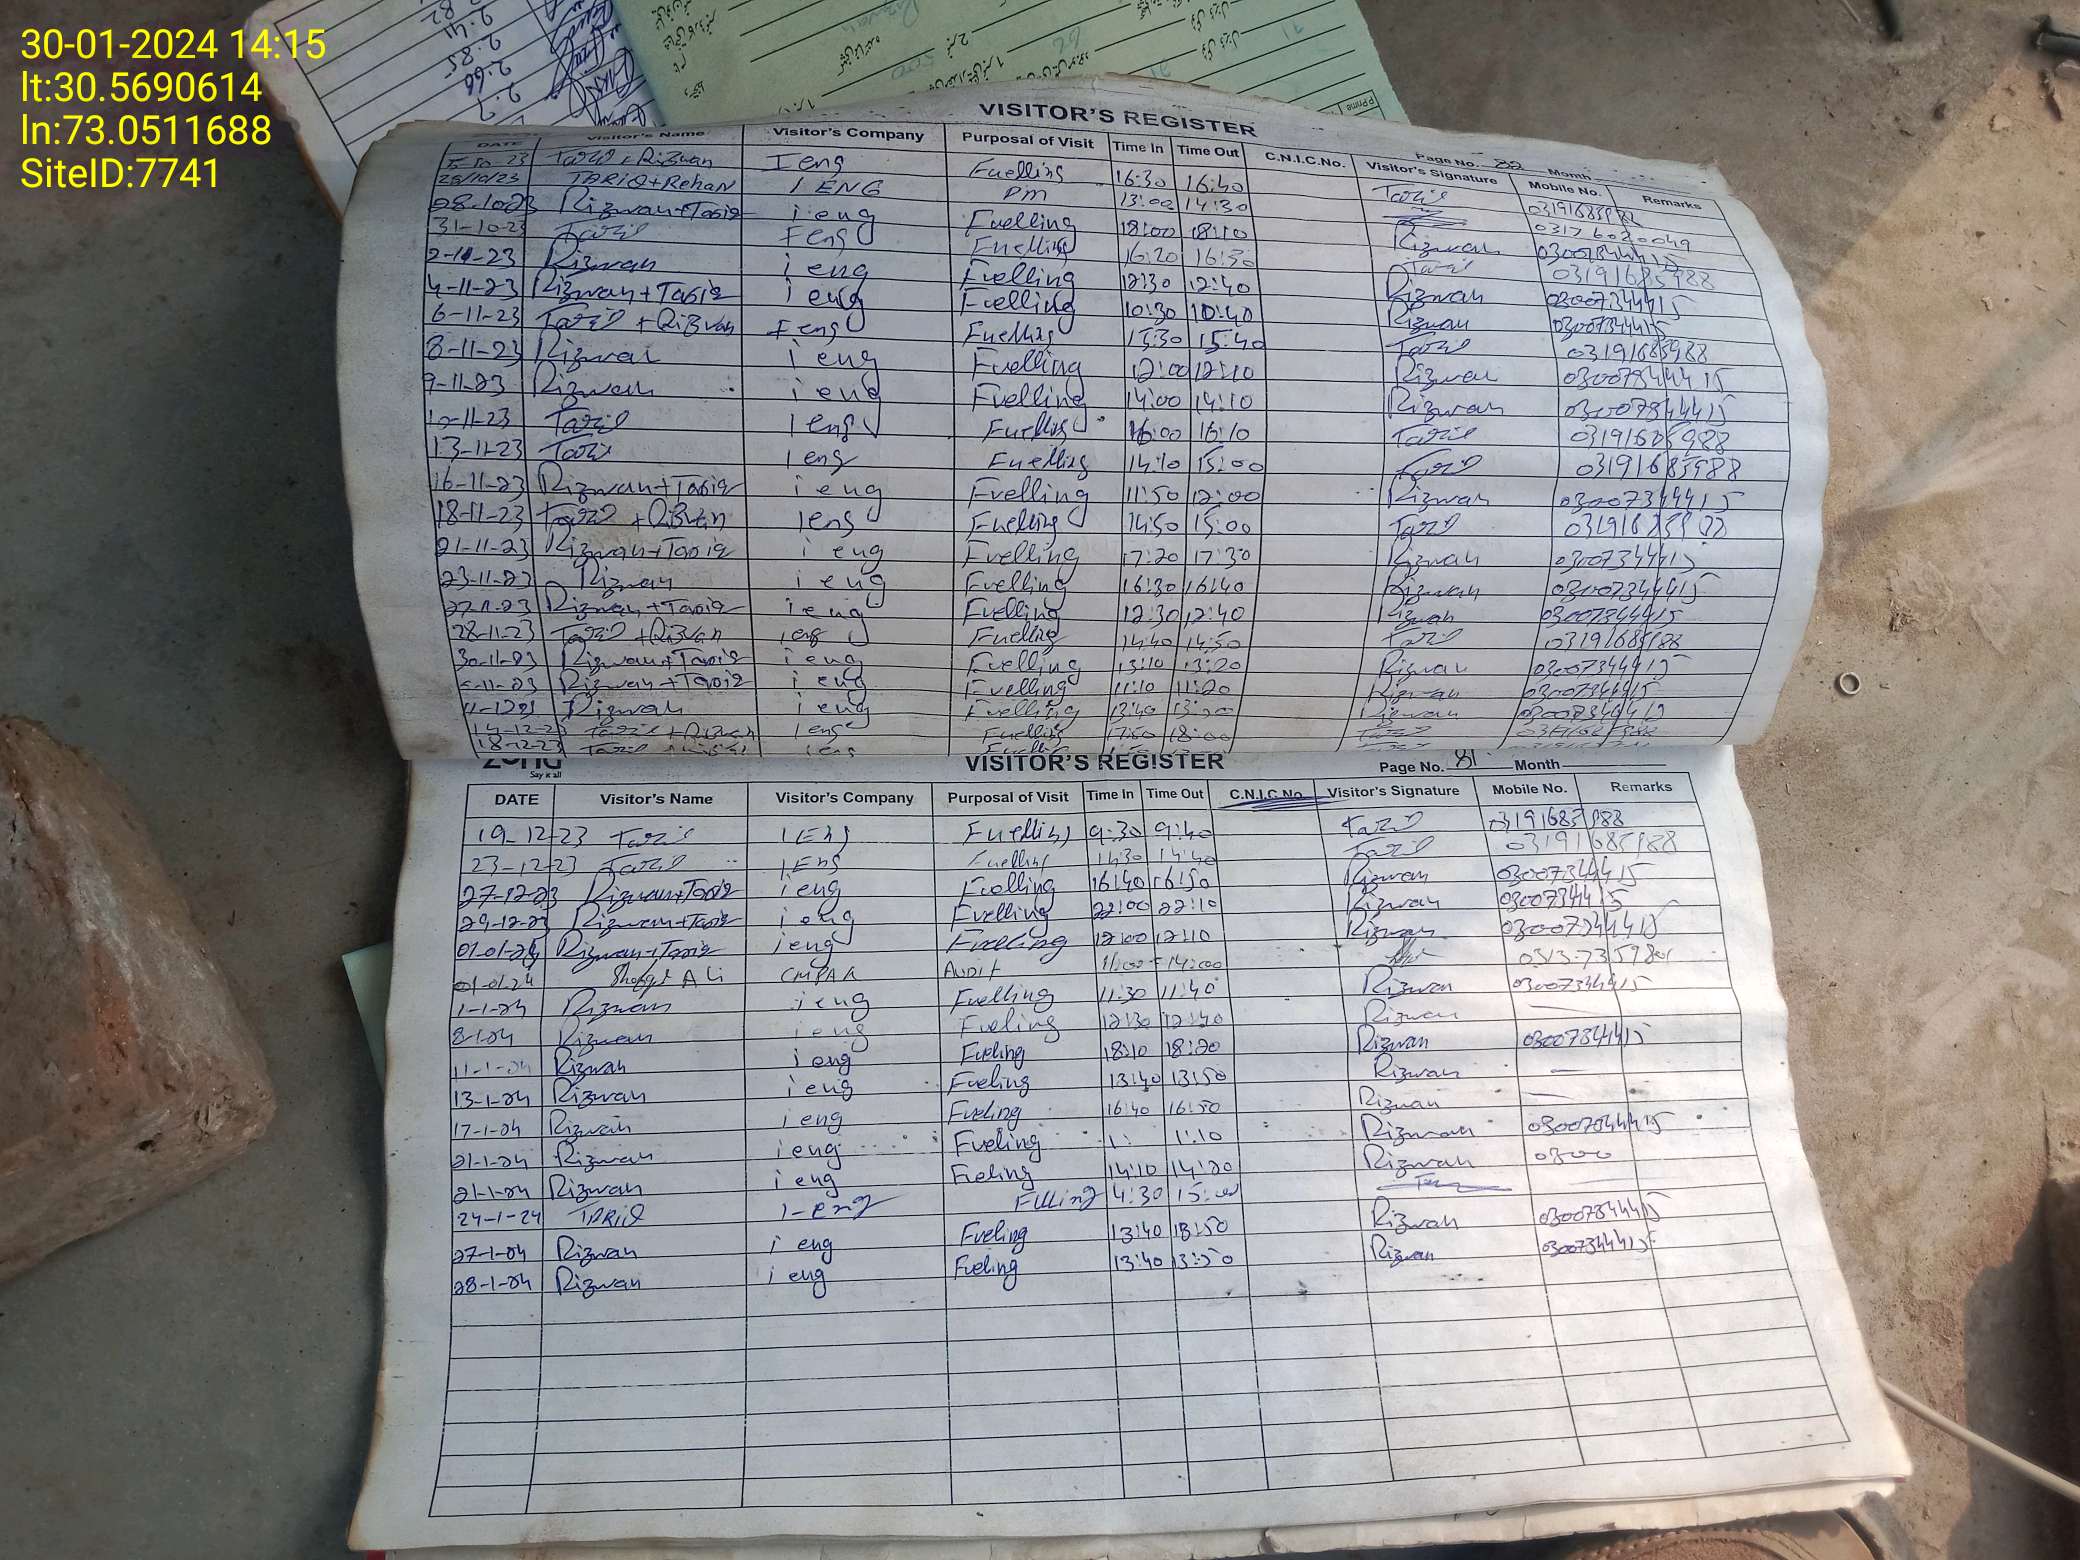 30-01-2024 14:15
lt:30.5690614
ln:73.0511688
SiteID:7741
VISITOR'S REGISTER
Page No. Month
DATE Visitor's Name Visitor's Company Purposal of Visit Time In Time Out C.N.I.C.No. Visitor's Signature Mobile No. Remarks
Tariq + Rizwan I eng Fuelling 16:30 16:40 Tariq
25/10/23 TARIQ+Rehan I ENG PM 13:00 14:30
28-10-23 Rizwan+Tariq i eng Fuelling 18:00 18:10 Rizwan
31-10-23 Tariq I eng Fuelling 16:20 16:30 Tariq 03191685988
2-11-23 Rizwan i eng Fuelling 12:30 12:40 Rizwan 03007344415
4-11-23 Rizwan+Tariq i eng Fuelling 10:30 10:40 Rizwan 03007344415
6-11-23 Tariq + Rizwan I eng Fuelling 15:30 15:40 Tariq 03191685988
8-11-23 Rizwan i eng Fuelling 12:00 12:10 Rizwan 03007344415
9-11-23 Rizwan i eng Fuelling 14:00 14:10 Rizwan 03007344415
10-11-23 Tariq I eng Fuelling 16:00 16:10 Tariq 03191685988
13-11-23 Tariq I eng Fuelling 15:00 Tariq 03191685988
16-11-23 Rizwan+Tariq i eng Fuelling 11:50 12:00 Rizwan 03007344415
18-11-23 Tariq + Rizwan I eng Fuelling 14:50 15:00 Tariq
21-11-23 Rizwan+Tariq i eng Fuelling 17:20 17:30 Rizwan 03007344415
23-11-23 Rizwan i eng Fuelling 16:30 16:40 Rizwan 03007344415
27-11-23 Rizwan+Tariq i eng Fuelling 12:30 12:40 Rizwan 03007344415
28-11-23 Tariq + Rizwan I eng Fuelling 14:40 14:50 Tariq
30-11-23 Rizwan+Tariq i eng Fuelling 13:10 13:20 Rizwan 03007344415
Rizwan+Tariq i eng Fuelling 11:10 11:20 Rizwan 03007344415
Rizwan i eng Fuelling 13:40 Rizwan
14-12-23 Tariq + Rizwan I eng Fuelling 18:00
18-12-23 Tariq I eng
zong
Say it all
VISITOR'S REGISTER
Page No. 81 Month
DATE Visitor's Name Visitor's Company Purposal of Visit Time In Time Out C.N.I.C.No. Visitor's Signature Mobile No. Remarks
19-12-23 Tariq I Eng Fuelling 9:30 9:40 Tariq 03191685988
23-12-23 Tariq I Eng Fuelling 14:30 14:40 Tariq 03191685988
27-12-23 Rizwan+Tariq i eng Fuelling 16:40 16:50 Rizwan 03007344415
29-12-23 Rizwan+Tariq i eng Fuelling 22:00 22:10 Rizwan 03007344415
01-01-24 Rizwan+Tariq i eng Fueling 12:00 12:10 Rizwan 03007344415
01-01-24 Ali CMPAK AUDIT 11:00 14:00
1-1-24 Rizwan i eng Fuelling 11:30 11:40 Rizwan 03007344415
8-1-24 Rizwan i eng Fueling 12:30 12:40 Rizwan
11-1-24 Rizwan i eng Fueling 18:10 18:20 Rizwan 03007344415
13-1-24 Rizwan i eng Fueling 13:40 13:50 Rizwan
17-1-24 Rizwan i eng Fueling 16:40 16:50 Rizwan
21-1-24 Rizwan i eng Fueling 1: 1:10 Rizwan 03007344415
21-1-24 Rizwan i eng Fueling 14:10 14:20 Rizwan 0300
24-1-24 TARIQ I-eng FIlling 4:30 15:00
27-1-24 Rizwan i eng Fueling 13:40 13:50 Rizwan 03007344415
28-1-24 Rizwan i eng Fueling 13:40 13:50 Rizwan 03007344415